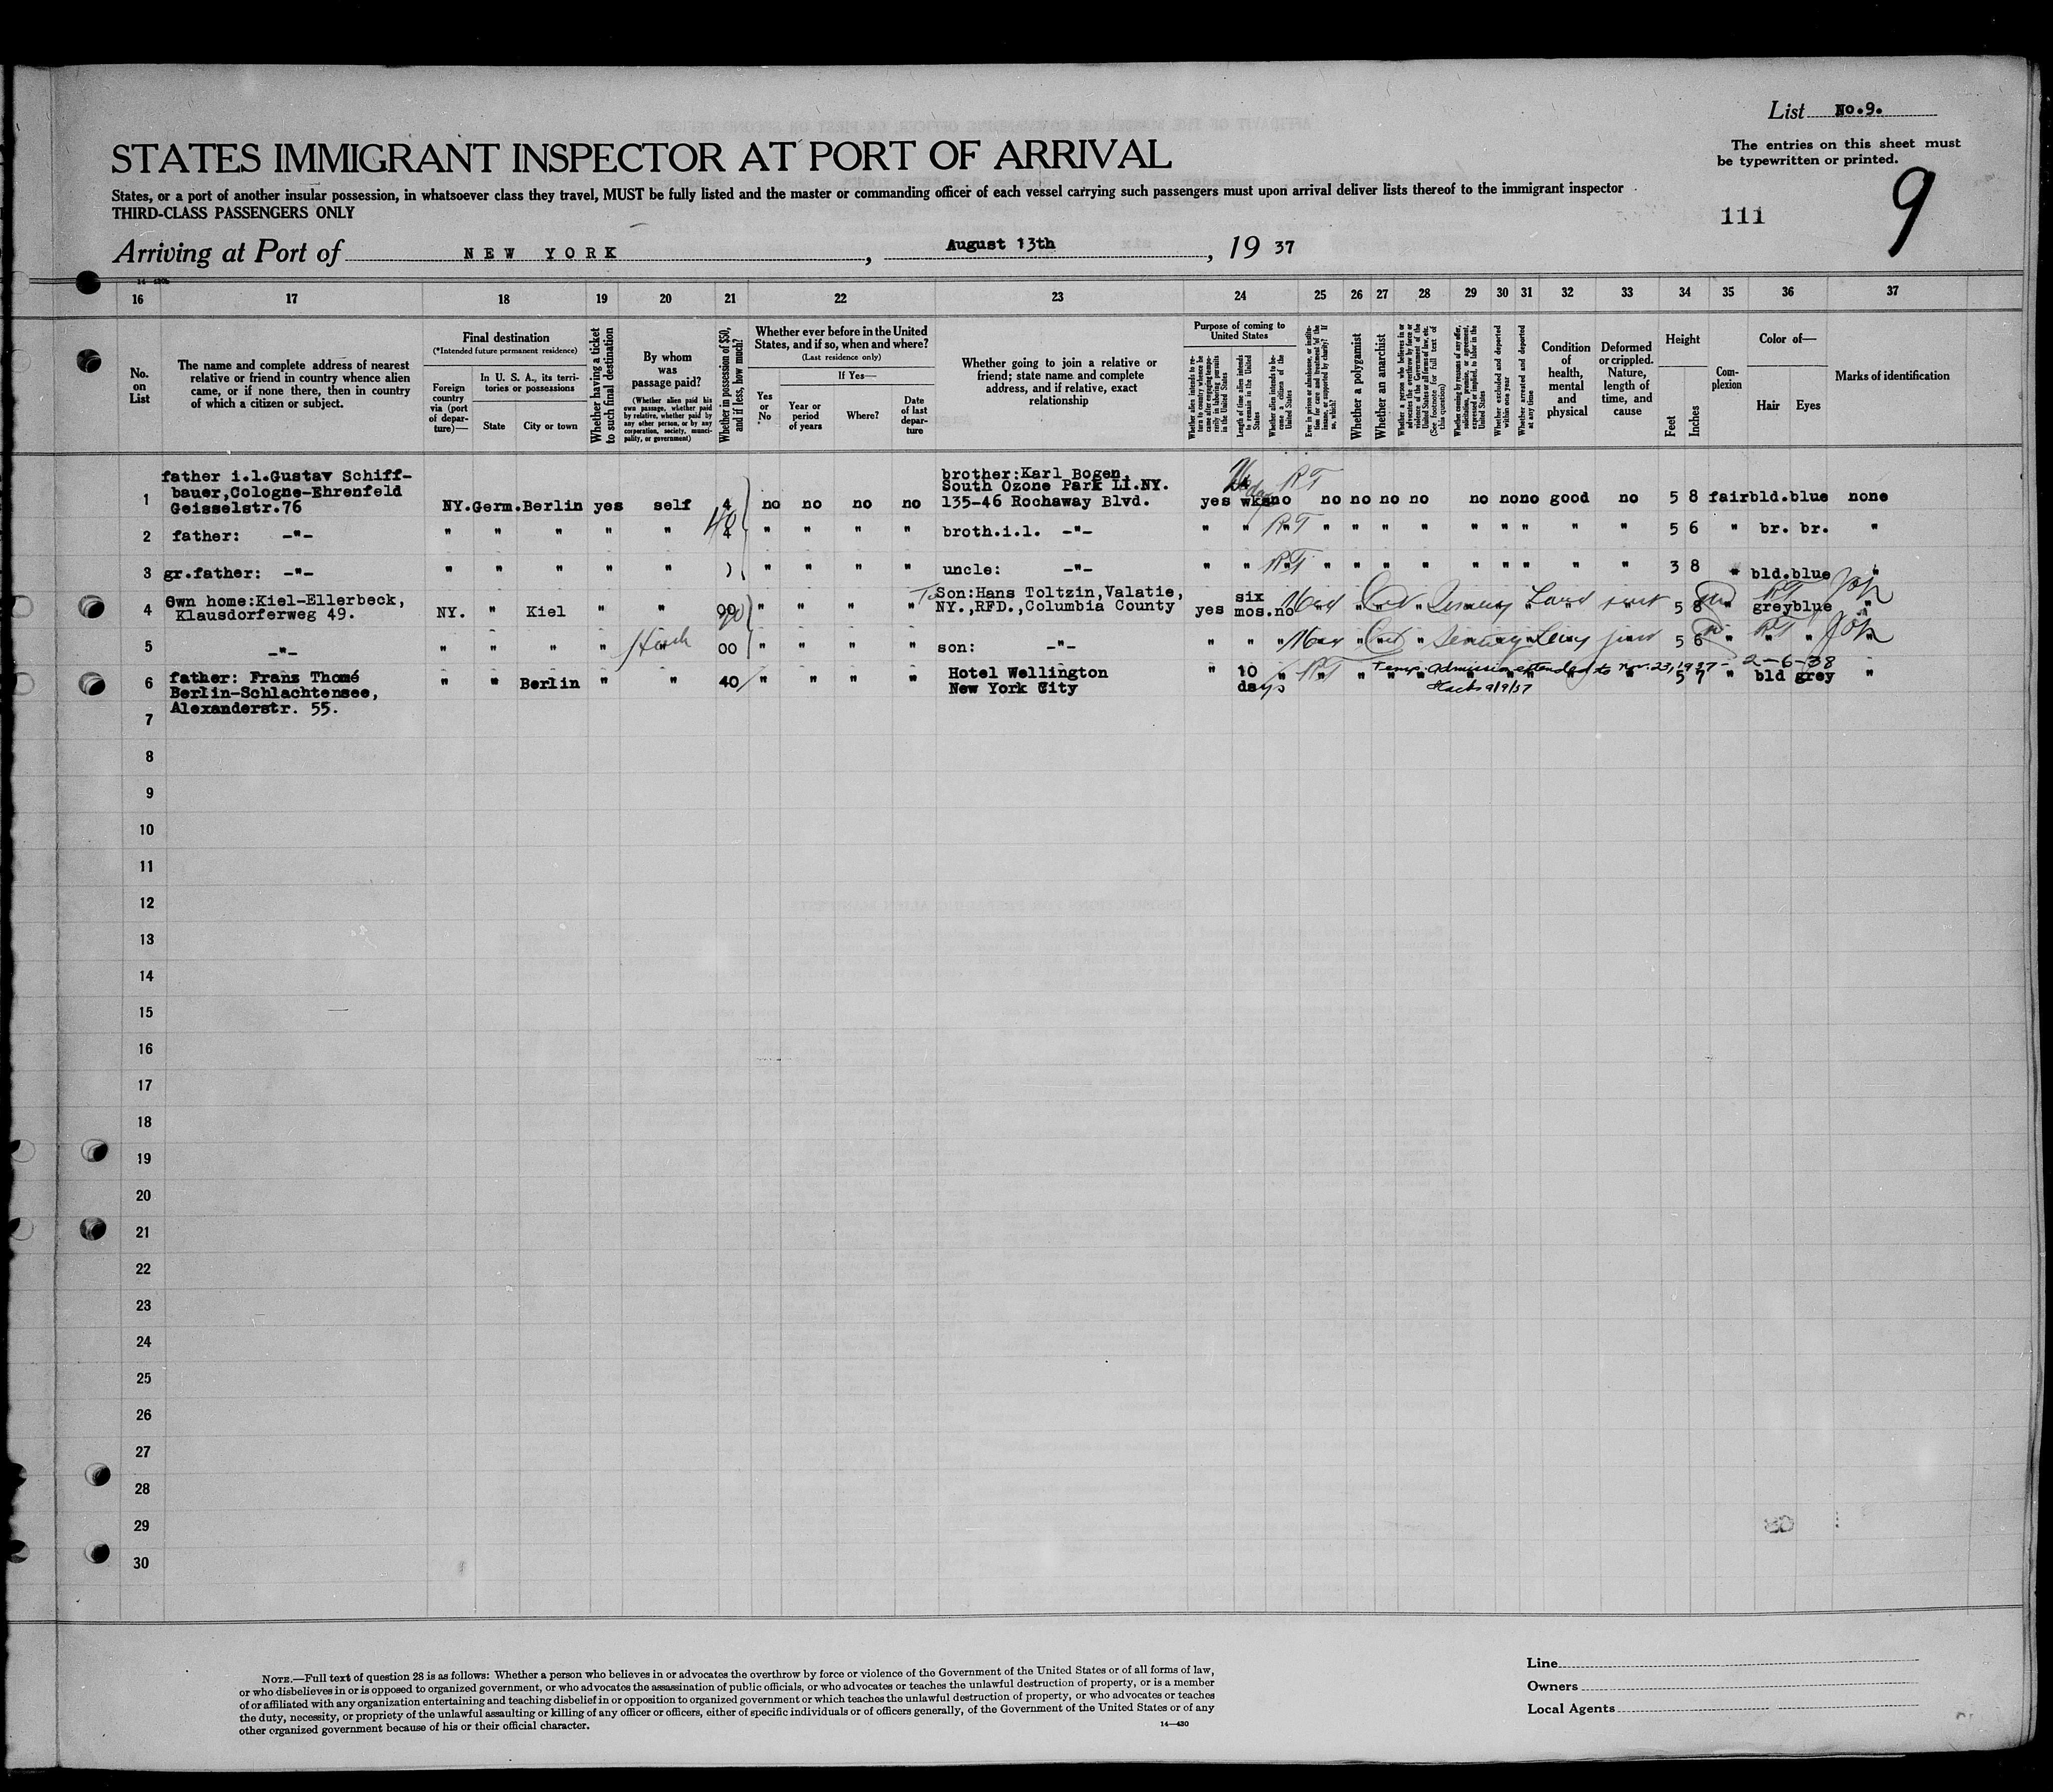 List No.9.
The entries on this sheet must
be typewritten or printed.
STATES IMMIGRANT INSPECTOR AT PORT OF ARRIVAL
9
States, or a port of another insular possession, in whatsoever class they travel, MUST be fully listed and the master or commanding officer of each vessel carrying such passengers must upon arrival deliver lists thereof to the immigrant inspector
THIRD-CLASS PASSENGERS ONLY
111
Arriving at Port of NEW YORK, August 13th, 19 37
16 17 18 19 20 21 22 23 24 25 26 27 28 29 30 31 32 33 34 35 36 37
No. on List
The name and complete address of nearest
relative or friend in country whence alien
came, or if none there, then in country
of which a citizen or subject.
Final destination
(*Intended future permanent residence)
Foreign country via (port of departure)—
In U. S. A., its territories or possessions
State
City or town
Whether having a ticket to such final destination
By whom was passage paid?
(Whether alien paid his own passage, whether paid by relative, whether paid by any other person, or by any corporation, society, municipality, or government)
Whether in possession of $50, and if less, how much?
Whether ever before in the United States, and if so, when and where?
(Last residence only)
Yes or No
If Yes—
Year or period of years
Where?
Date of last departure
Whether going to join a relative or
friend; state name and complete
address, and if relative, exact
relationship
Purpose of coming to United States
Whether alien intends to return to country whence he came after engaging temporarily in laboring pursuits in the United States
Length of time alien intends to remain in the United States
Whether alien intends to become a citizen of the United States
Ever in prison or almshouse, or institution for care and treatment of the insane, or supported by charity? If so, which?
Whether a polygamist
Whether an anarchist
Whether a person who believes in or advocates the overthrow by force or violence of the Government of the United States or all forms of law, etc. (See footnote for full text of this question)
Whether coming by reason of any offer, solicitation, promise, or agreement, expressed or implied, to labor in the United States
Whether excluded and deported within one year
Whether arrested and deported at any time
Condition of health, mental and physical
Deformed or crippled. Nature, length of time, and cause
Height
Feet
Inches
Complexion
Color of—
Hair
Eyes
Marks of identification
father i.l.Gustav Schiff- brother:Karl Bogen,
bauer,Cologne-Ehrenfeld South Ozone Park LI.NY. RT
1 Geisselstr.76 NY.Germ.Berlin yes self 4 no no no no 135-46 Rochaway Blvd. yes wks no no no no no no no no good no 5 8 fair bld.blue none
2 father: -"- " " " " " 4 " " " " broth.i.l. -"- " " RT " " " " " " " " " 5 6 " br. br. "
3 gr.father: -"- " " " " " " " " " uncle: -"- " " RT " " " " " " " " " 3 8 " bld.blue "
Own home:Kiel-Ellerbeck, Son:Hans Toltzin,Valatie, six
4 Klausdorferweg 49. NY. " Kiel " " 00 " " " " NY.,RFD.,Columbia County yes mos.no 5 8 " greyblue "
5 -"- " " " " " 00 " " " " son: -"- " " " 5 6 " " " "
6 father: Franz Thomé " " Berlin " " 40 " " " " Hotel Wellington " 10 " RT Temp. admission extended to Nov. 23, 1937 – 2-6-38
Berlin-Schlachtensee, New York City days 9/9/37 5 7 " bld grey "
7 Alexanderstr. 55.
8
9
10
11
12
13
14
15
16
17
18
19
20
21
22
23
24
25
26
27
28
29
30
NOTE.—Full text of question 28 is as follows: Whether a person who believes in or advocates the overthrow by force or violence of the Government of the United States or of all forms of law,
or who disbelieves in or is opposed to organized government, or who advocates the assassination of public officials, or who advocates or teaches the unlawful destruction of property, or is a member
of or affiliated with any organization entertaining and teaching disbelief in or opposition to organized government or which teaches the unlawful destruction of property, or who advocates or teaches
the duty, necessity, or propriety of the unlawful assaulting or killing of any officer or officers, either of specific individuals or of officers generally, of the Government of the United States or of any
other organized government because of his or their official character.
14—430
Line
Owners
Local Agents